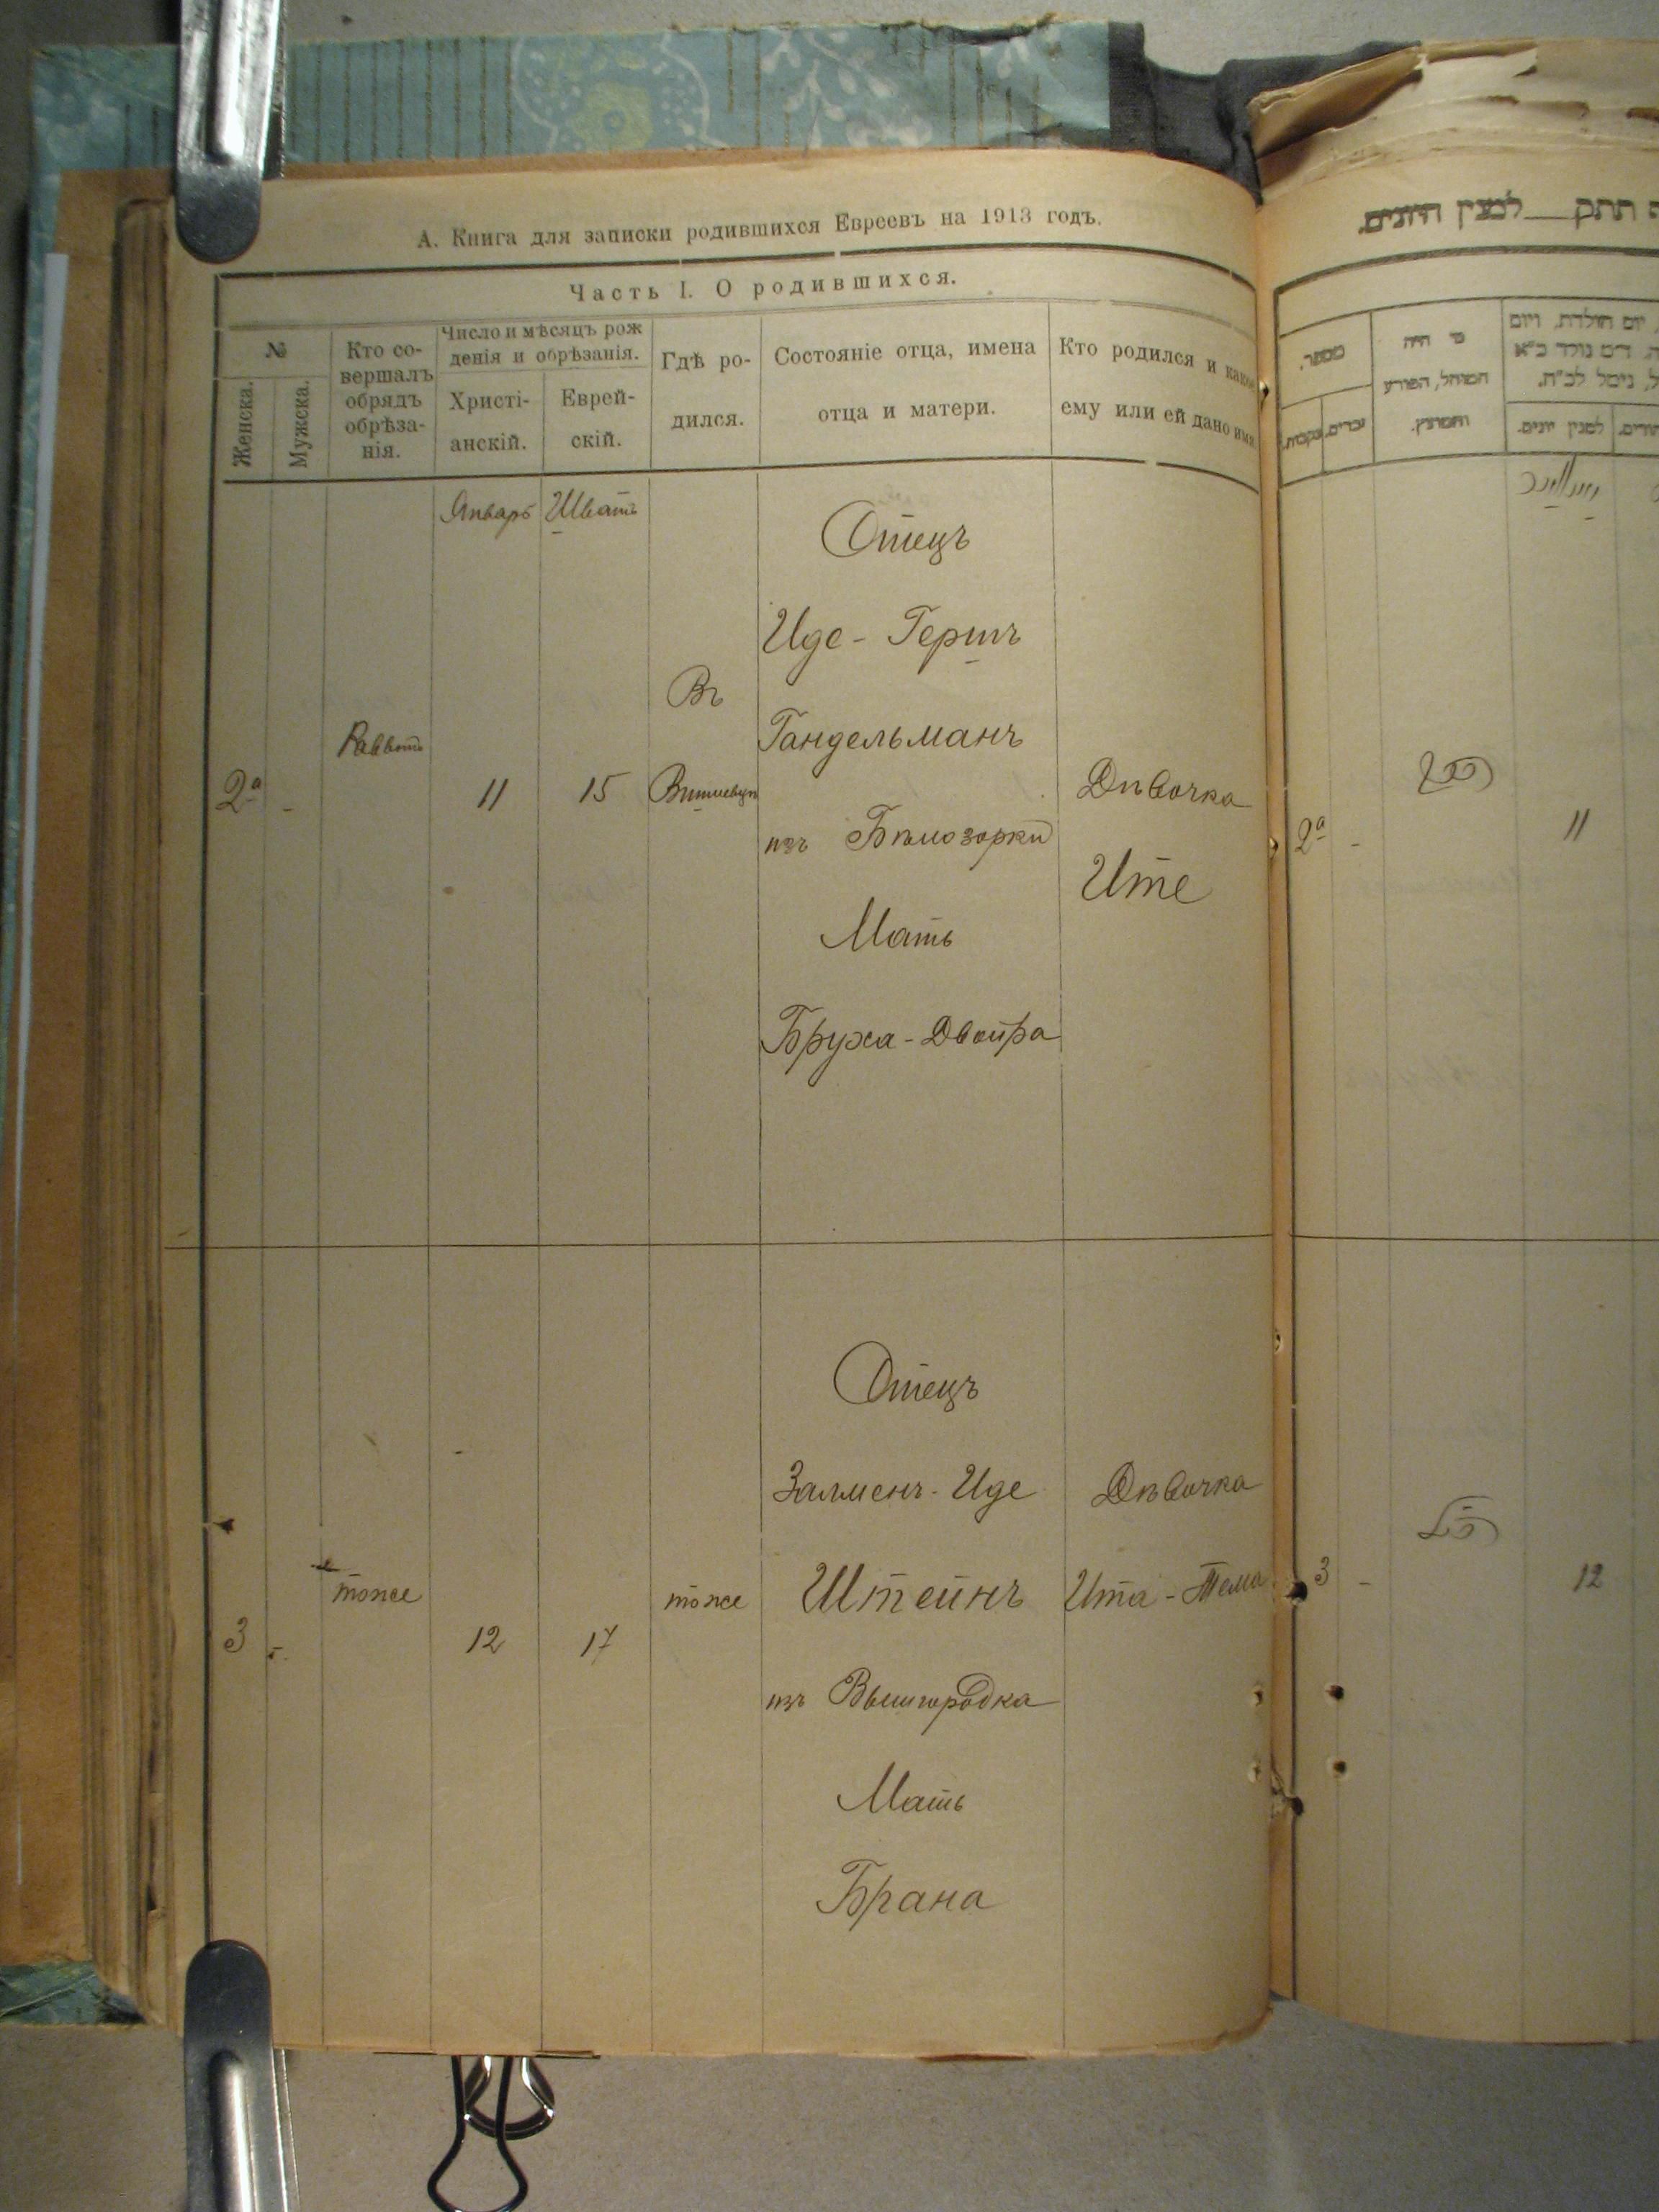 А. Книга для записки родившихся Евреевъ на 1913 годъ.
Часть I. О родившихся.
№
Женска.
Мужска.
Кто со-
вершалъ
обрядъ
обрѣза-
нія.
Число и мѣсяцъ рож
денія и обрѣзанія.
Христі-
анскій.
Еврей-
скій.
Гдѣ ро-
дился.
Состояніе отца, имена
отца и матери.
Кто родился и какое
ему или ей дано имя.
Январь
Шватъ
2а
-
11
15
Въ
Отецъ
Иде - Гершъ
Гандельманъ
изъ Бѣлозорки
Мать
Бруха - Двойра
Дѣвочка
Ите
3
-
тоже
12
17
тоже
Отецъ
Залменъ - Иде
Штейнъ
изъ Вышгородка
Мать
Брана
Дѣвочка
Ита - Тема
למנין היונים.
מספר.
מי היה
המוהל, הפורע
והמוצץ.
למנין יונים.
2а
-
11
3
-
12